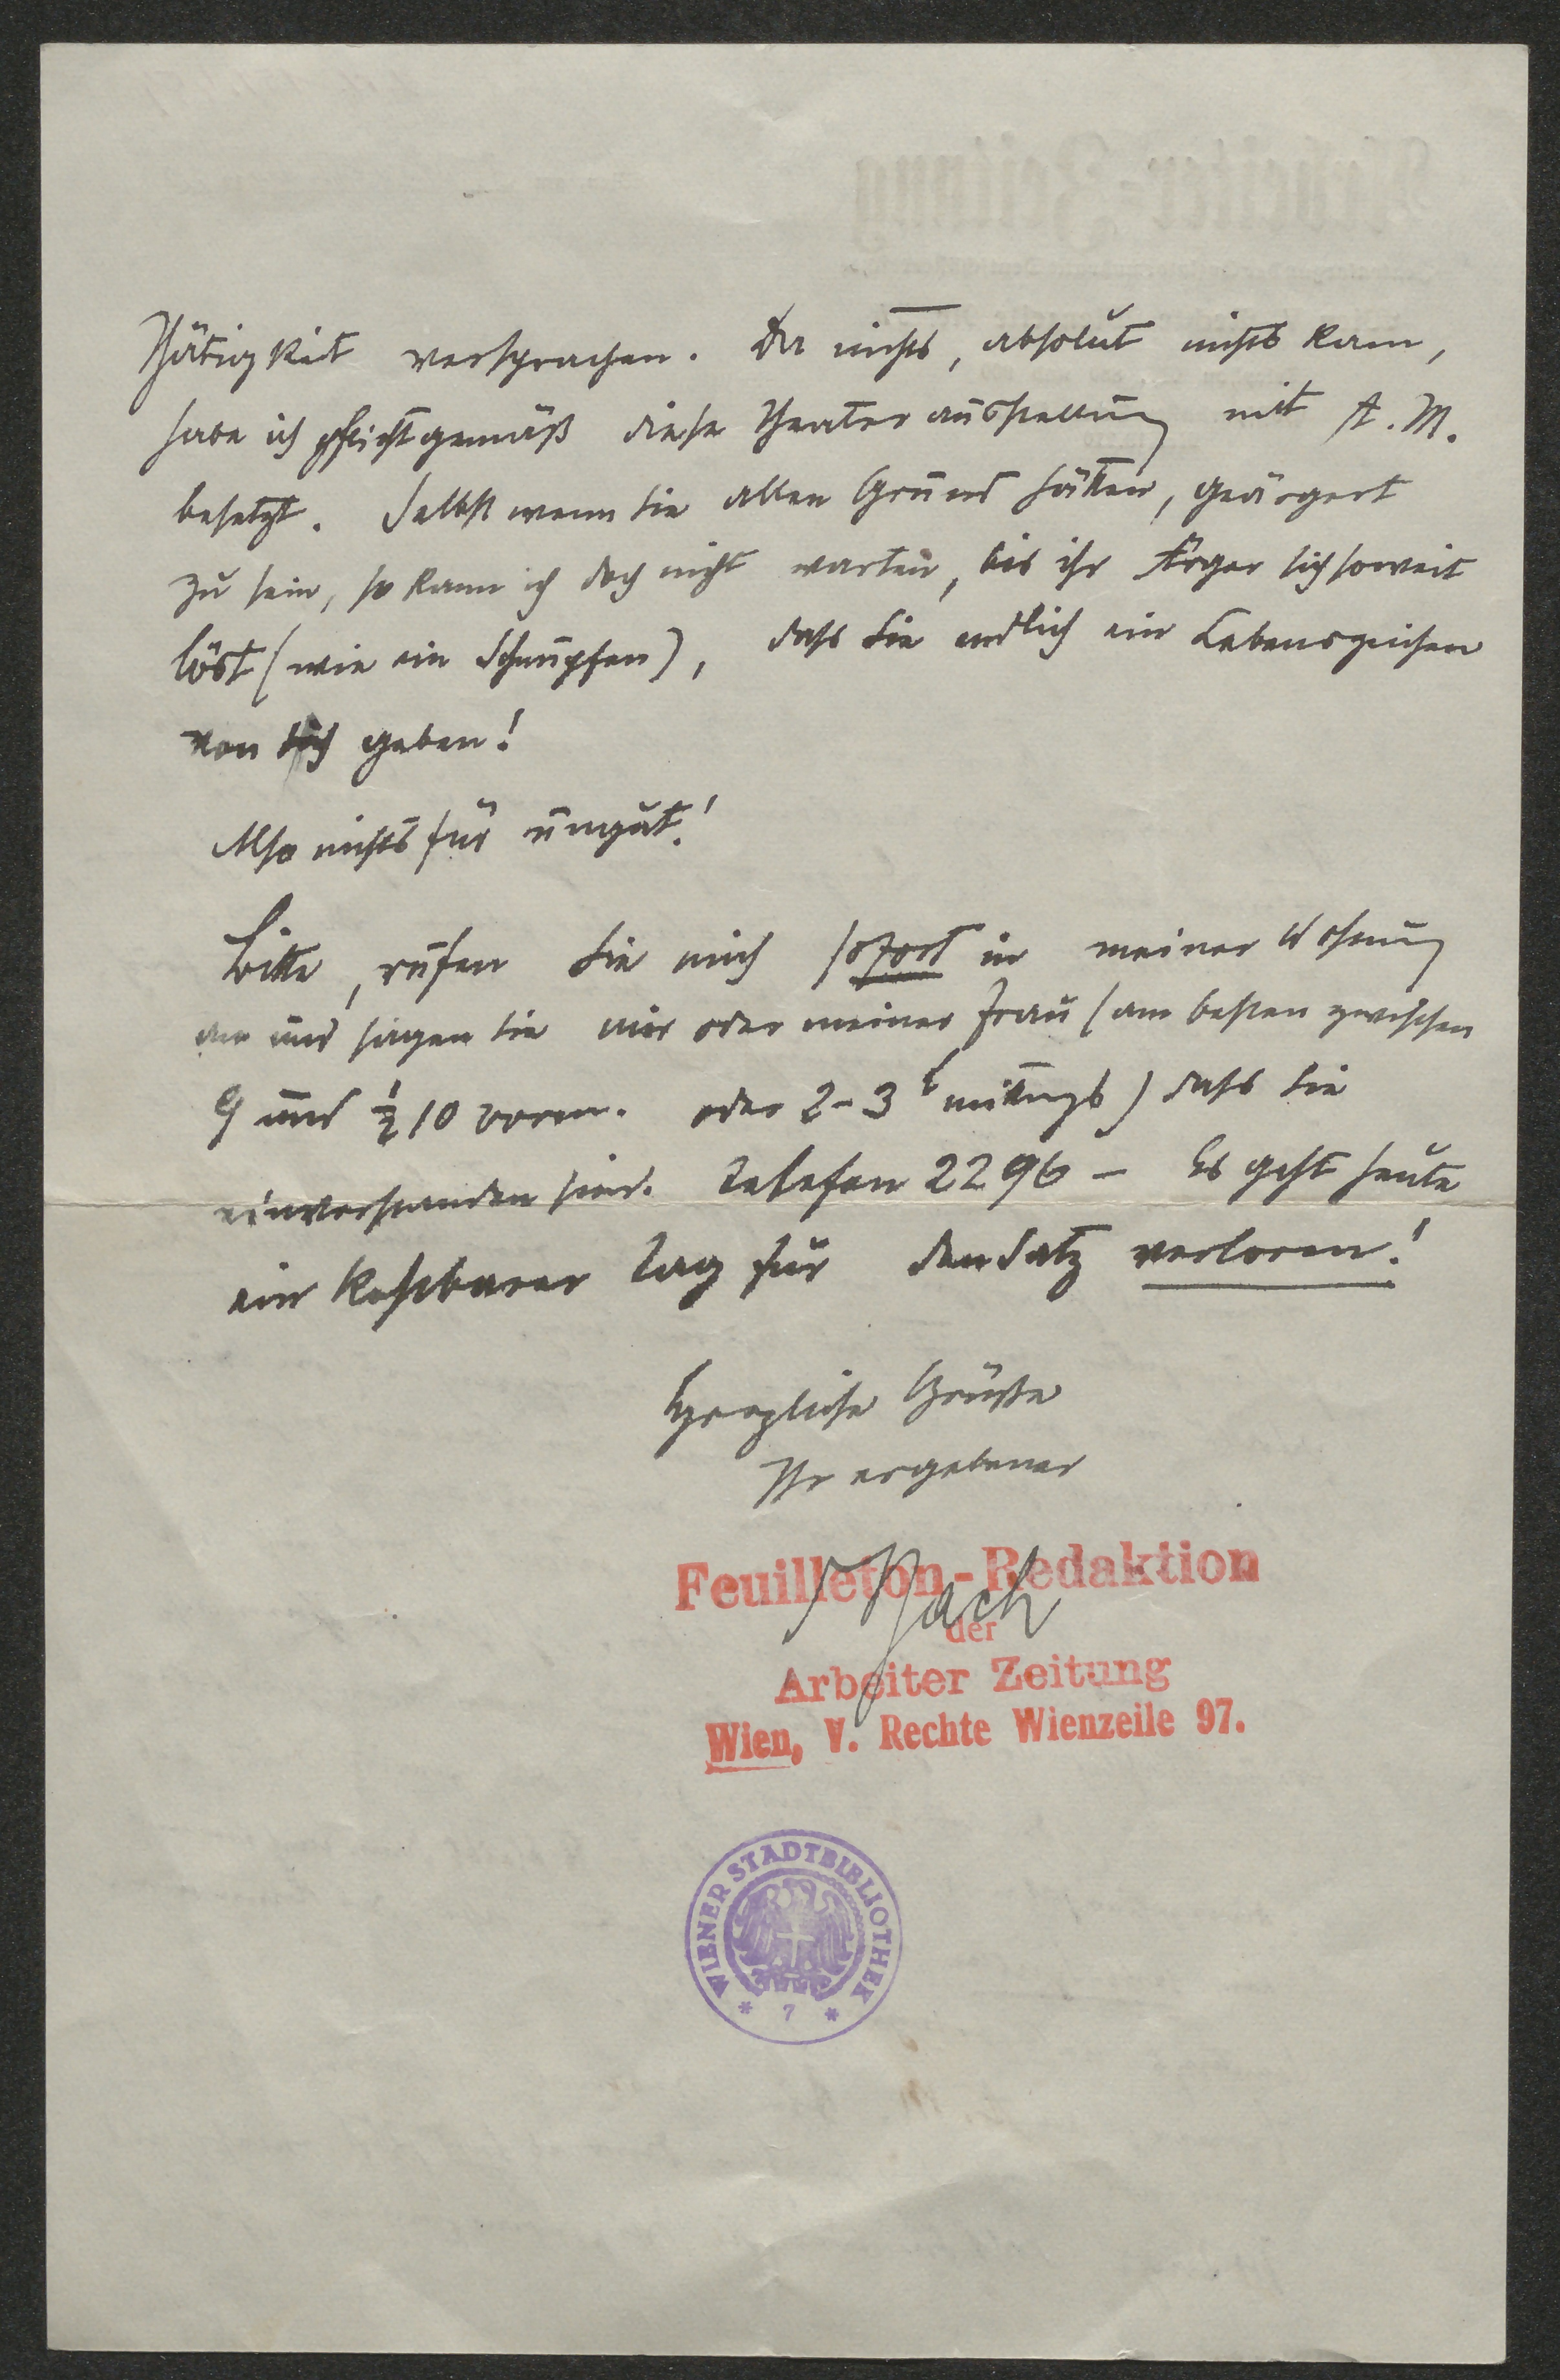 Thätigkeit versprachen. Da nichts, absolut nichts kam,
habe ich pflichtgemäß diese Theaterausstellung mit A. M.
besetzt. Selbst wenn Sie allen Grund hätten, geärgert
zu sein, so kann ich doch nicht warten, bis ihr Ärger sich soweit
löst (wie ein Schnupfen), dass Sie endlich ein Lebenszeichen
von sich geben!
Also nichts für ungut!
Bitte, rufen Sie mich sofort in meiner Wohnung
an und sagen Sie mir oder meiner Frau (am besten zwischen
9 und ½ 10 vorm. oder 2-3 h mittags) dass Sie
einverstanden sind. Telefon 2296 – Es geht heute
ein kostbarer Tag für den Satz verloren!
Herzliche Grüße
Ihr ergebener
Bach
Feuilleton-Redaktion
der
Arbeiter Zeitung
Wien, V. Rechte Wienzeile 97.
WIENER STADTBIBLIOTHEK
* 7 *